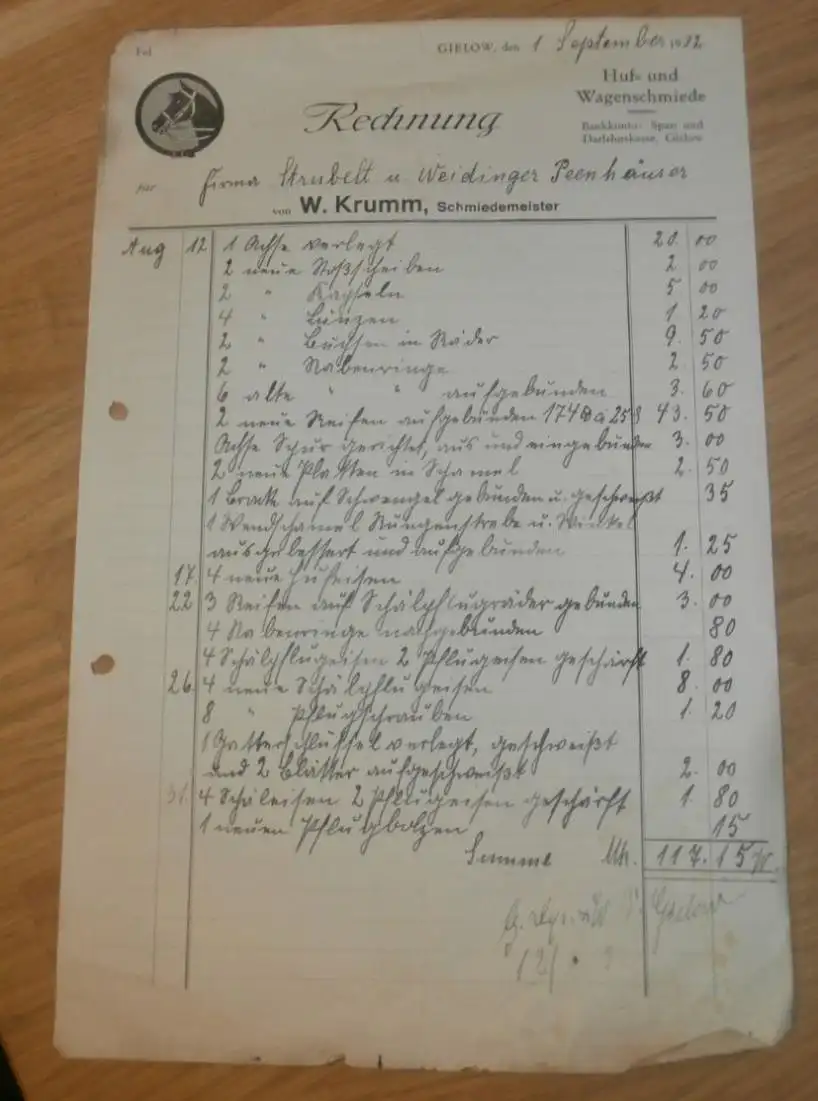 GIELOW, den 1 September 1932
Huf- und
Wagenschmiede
Bankkonto: Spar und
Darlehnskasse, Gielow
Rechnung
für Firma Strubelt u Weidinger Peenhäuser
von W. Krumm, Schmiedemeister
Aug 12 1 Achse verlegt 20 00
2 neue Stoßscheiben 2 00
2 " Kapseln 5 00
4 " Lünzen 1 20
2 " Buchsen in Räder 9. 50
2 " Nabenringe 2. 50
6 alte " " aufgebunden 3. 60
2 neue Reifen aufgebunden 174 à 25 43. 50
Achse Spur gerichtet, aus und eingebunden 3. 00
2 neue Platten in Schamel 2. 50
1 Brack auf Schwengel gebunden u. geschweißt 35
1 Wendschamel Rungenstrebe u. Winkel
ausgebessert und aufgebunden 1. 25
17 4 neue Hufeisen 4. 00
22 3 Reifen auf Schälpflugräder gebunden 3. 00
4 Nabenringe nachgebunden 80
4 Schälpflugeisen 2 Pflugeisen geschärft 1. 80
26. 4 neue Schälpflugeisen 8. 00
8 " Pflugschrauben 1. 20
1 Gatterschlüssel verlegt, geschweißt
und 2 Blätter aufgeschweißt 2. 00
31. 4 Schäleisen 2 Pflugeisen geschärft 1. 80
1 neuen Pflugbolzen 15
Summe Mk. 117. 15
Gielow